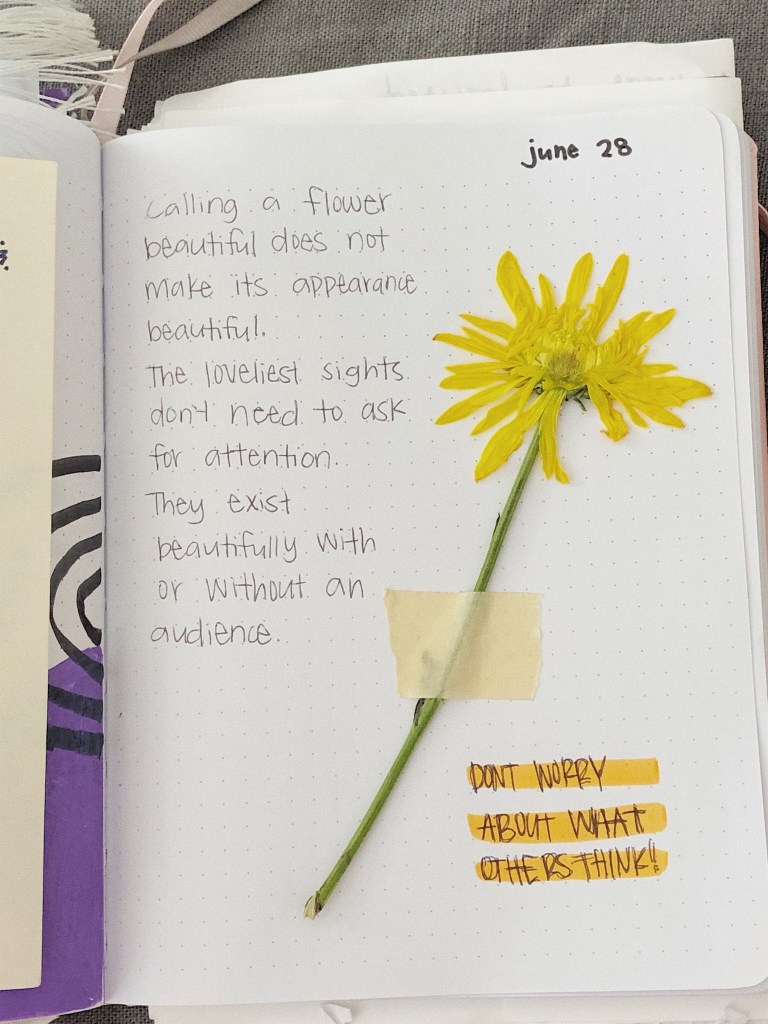 june 28
calling a flower
beautiful does not
make its appearance
beautiful.
The loveliest sights
don't need to ask
for attention.
They exist
beautifully with
or without an
audience.
DONT WORRY
ABOUT WHAT
OTHERS THINK!!